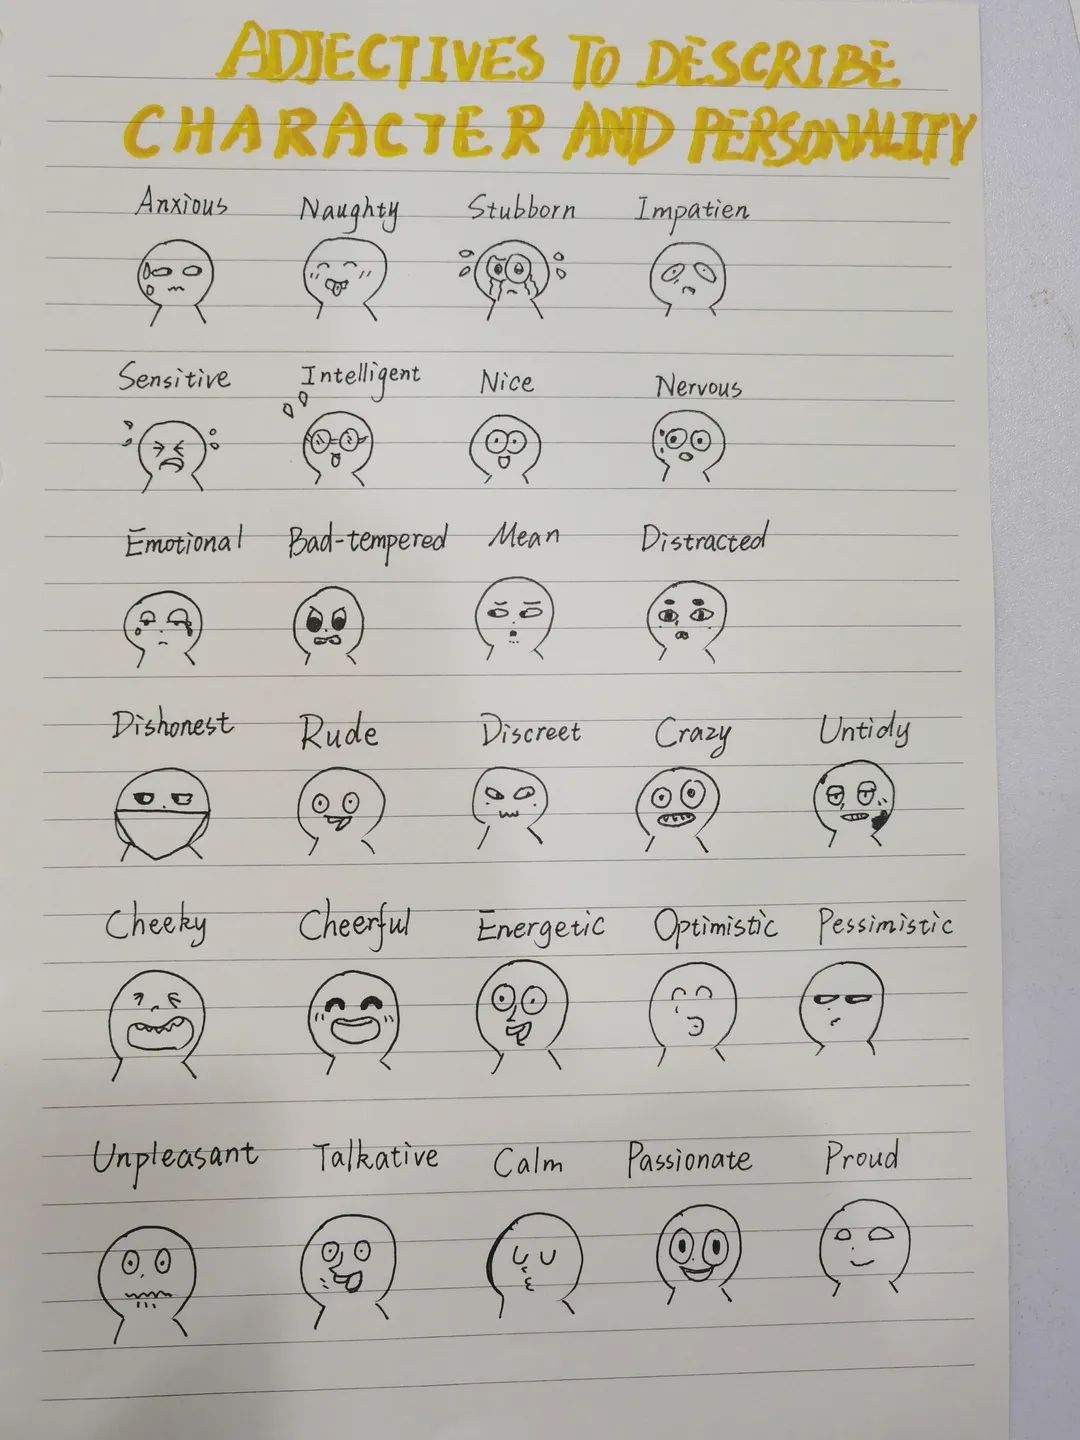 ADJECTIVES TO DESCRIBE
CHARACTER AND PERSONALITY
Anxious Naughty Stubborn Impatien
Sensitive Intelligent Nice Nervous
Emotional Bad-tempered Mean Distracted
Dishonest Rude Discreet Crazy Untidy
Cheeky Cheerful Energetic Optimistic Pessimistic
Unpleasant Talkative Calm Passionate Proud